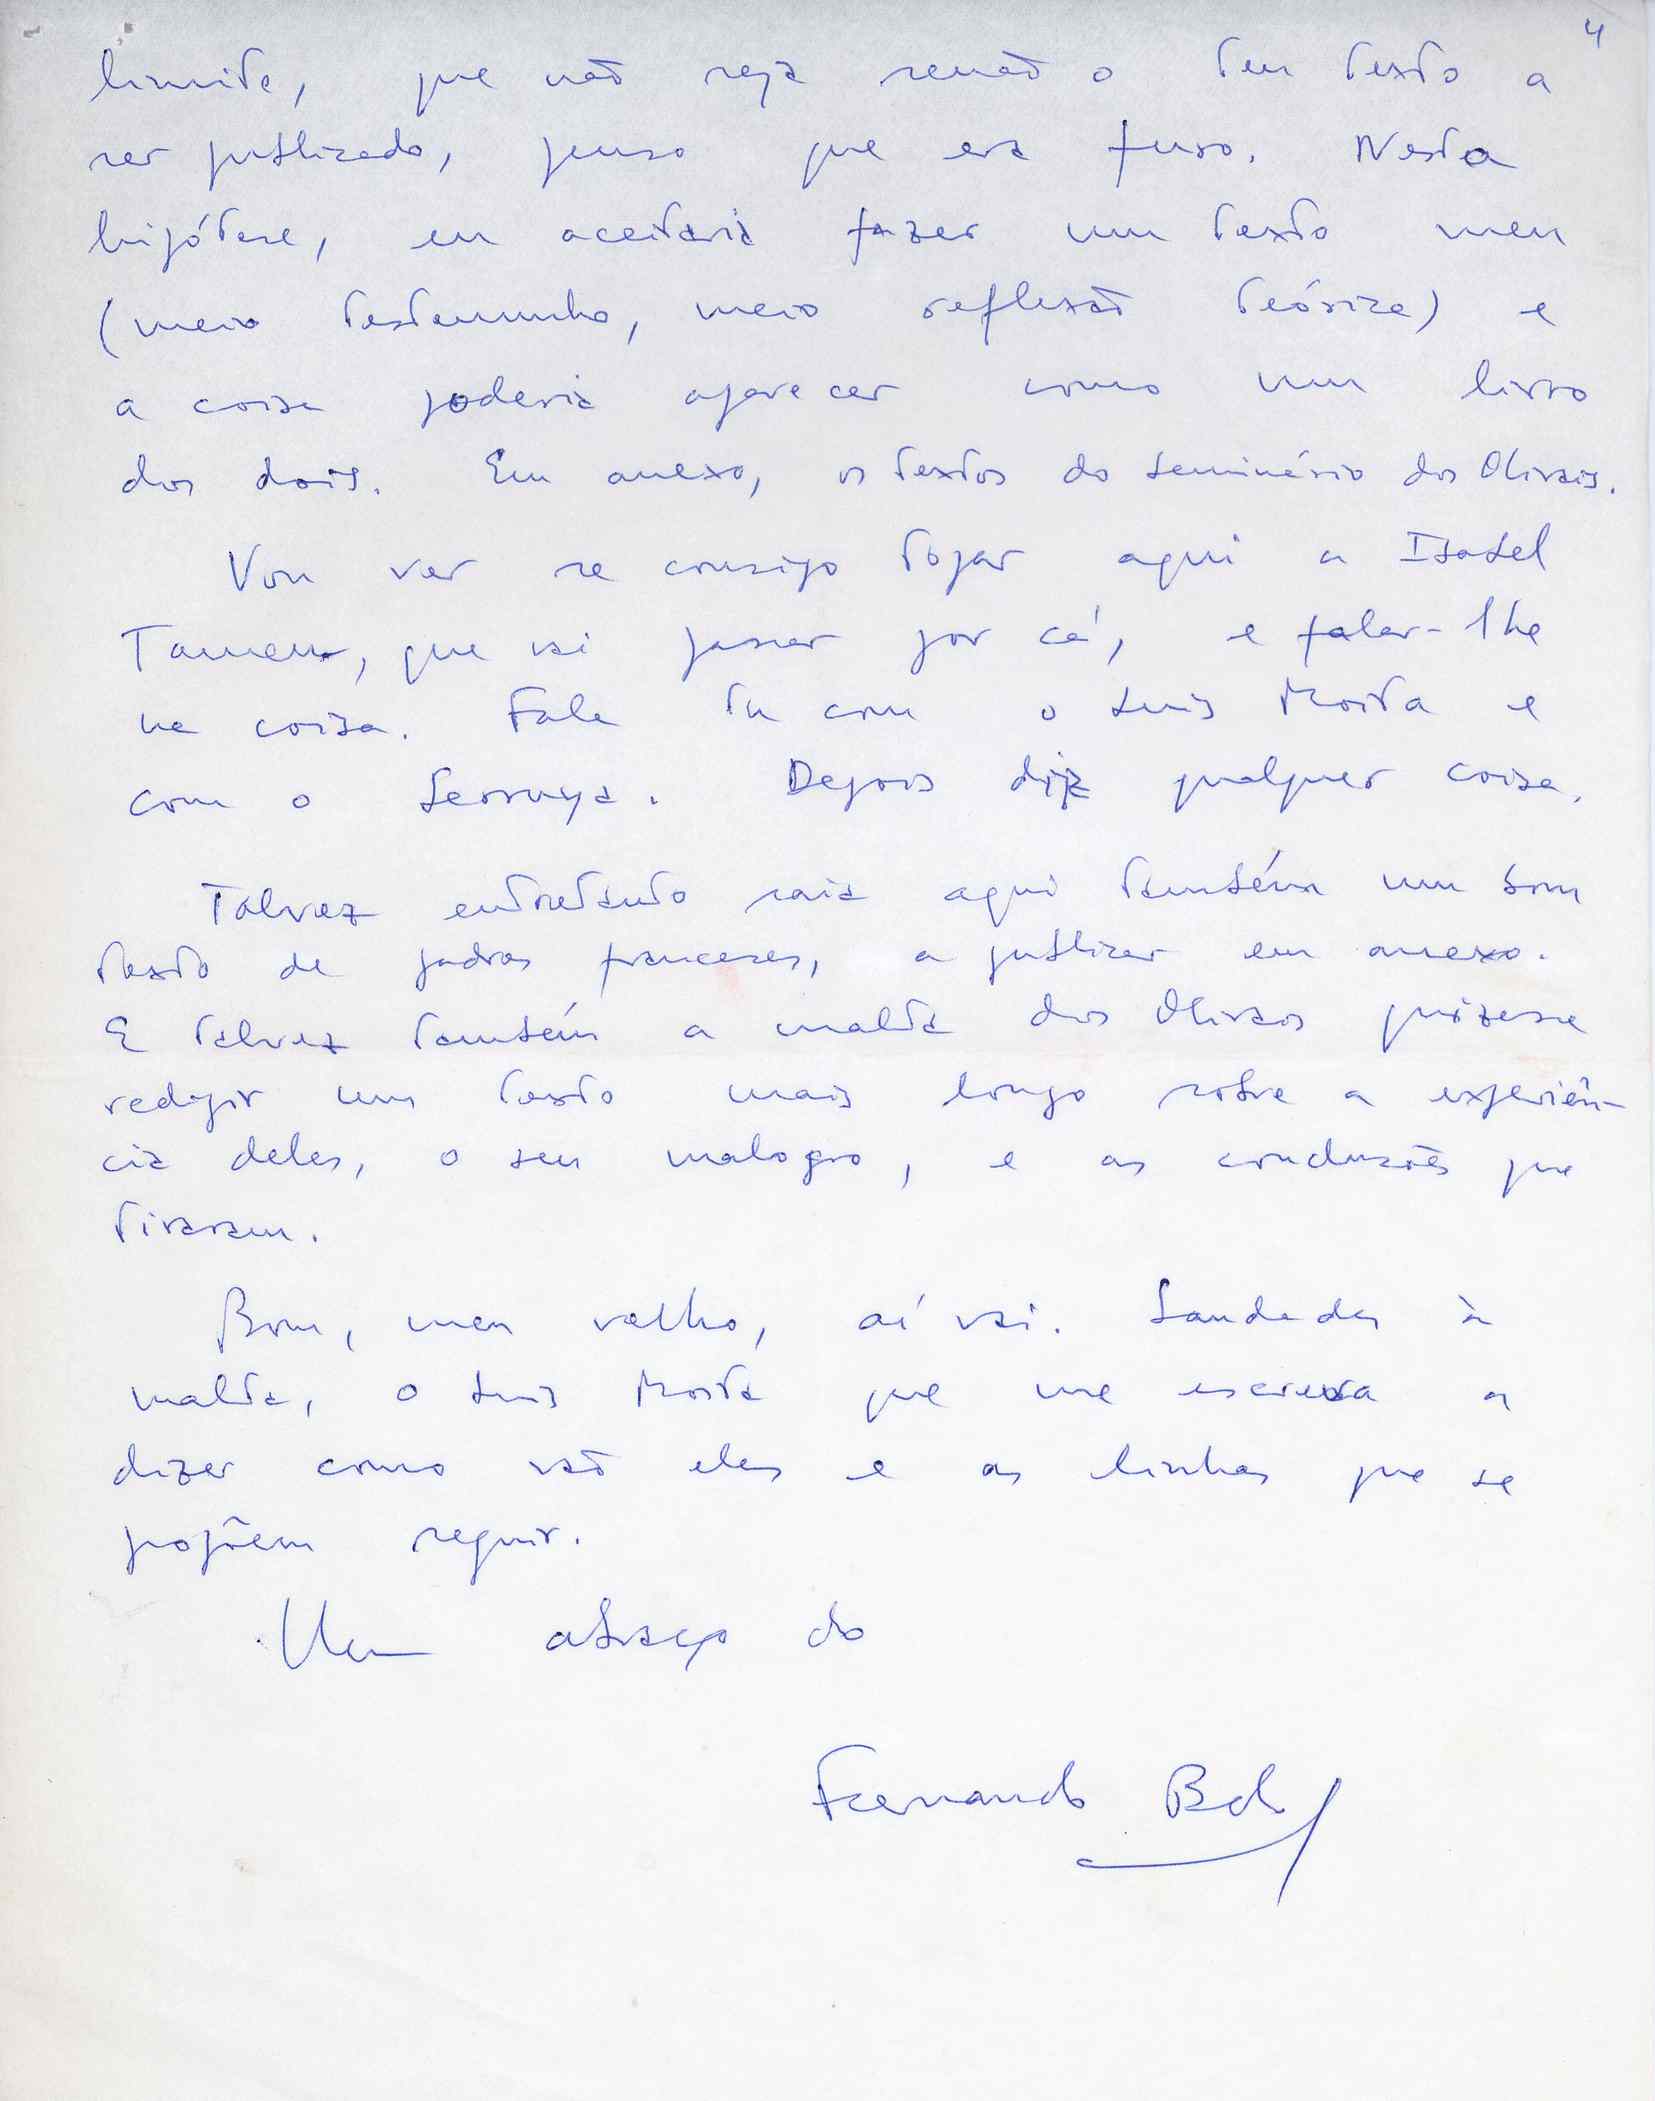 4
limite, que não seja senão o teu texto a
ser publicado, penso que era furo. Nesta
hipótese, eu aceitaria fazer um texto meu
(meio testemunho, meio reflexão teórica) e
a coisa poderia aparecer como um livro
dos dois. Em anexo, os textos do Seminário dos Olivais.
Vou ver se consigo topar aqui a Isabel
Tamen, que vai passar por cá, e falar-lhe
na coisa. Fala tu com o Luis Moita e
com o Serruya. Depois diz qualquer coisa.
Talvez entretanto saia aqui também um bom
texto de padres franceses, a publicar em anexo.
E talvez também a malta dos Olivais quizesse
redigir um texto mais longo sobre a experiên-
cia deles, o seu malogro, e as conclusões que
tiraram.
Bom, meu velho, aí vai. Saudades à
malta, o Luis Moita que me escreva a
dizer como vão eles e as linhas que se
propõem seguir.
Um abraço do
Fernando Belo